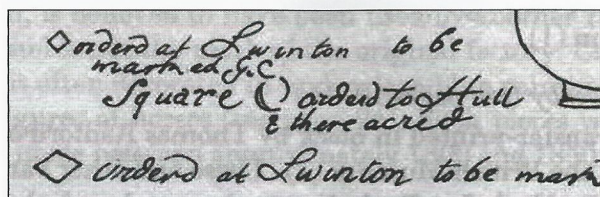 ◇ orderd at Swinton to be
marked G.C
Square ( ) orderd to Hull
& there acred
◇ orderd at Swinton to be mark